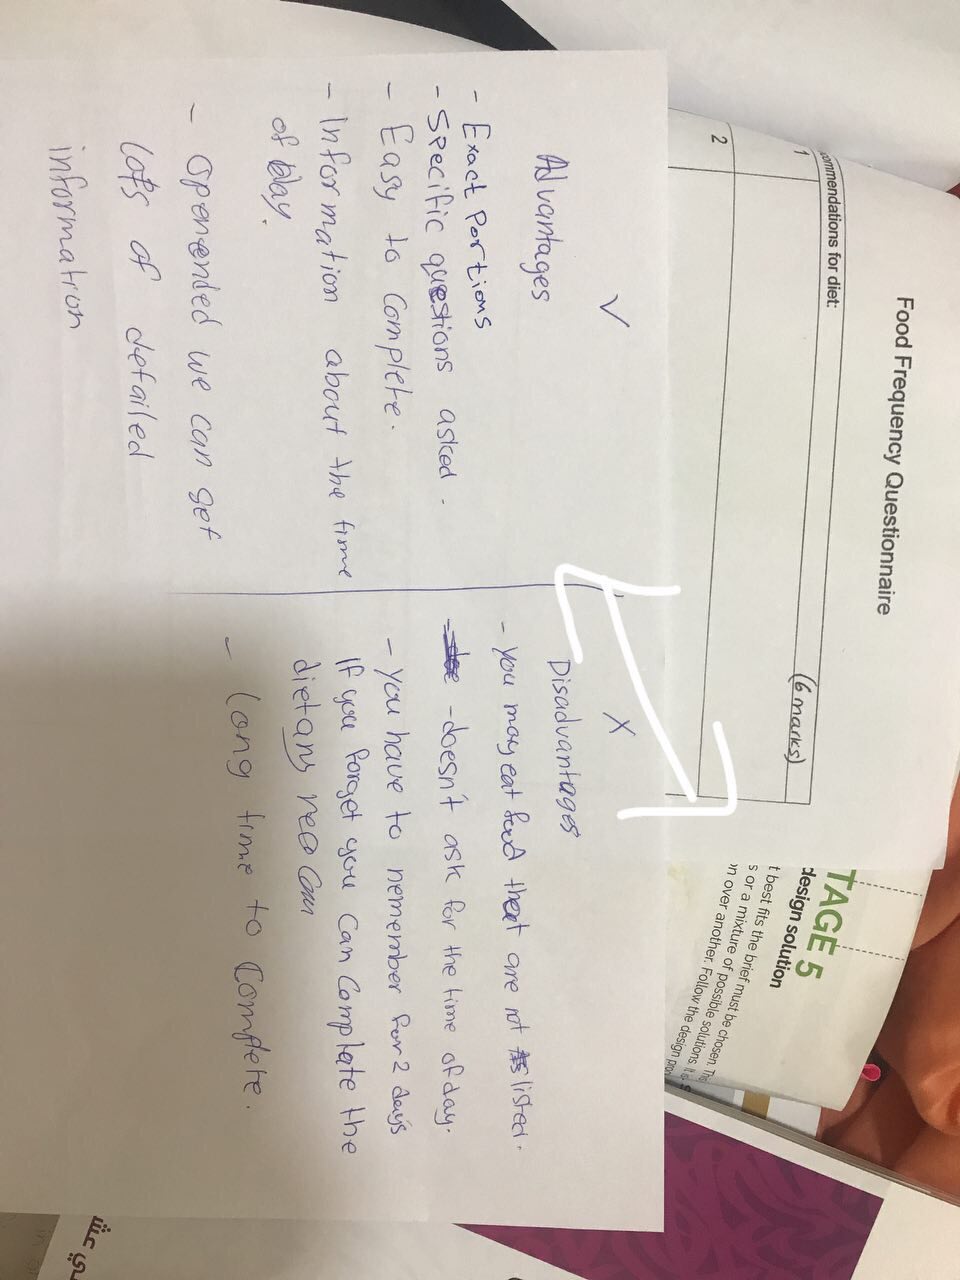 Food Frequency Questionnaire
commendations for diet:
1
(6 marks)
2
TAGE 5
design solution
t best fits the brief must be chosen. Th
s or a mixture of possible solutions.
on over another. Follow the design
✓
Advantages
- Exact Portions
- Specific questions asked.
- Easy to Complete.
- Information about the time
of day.
- we can get
lots of detailed
information
X
Disadvantages
- you may eat food that are not listed.
- doesn't ask for the time of day.
- you have to remember for 2 days
if you forget you can complate the
can
- long time to Complete.